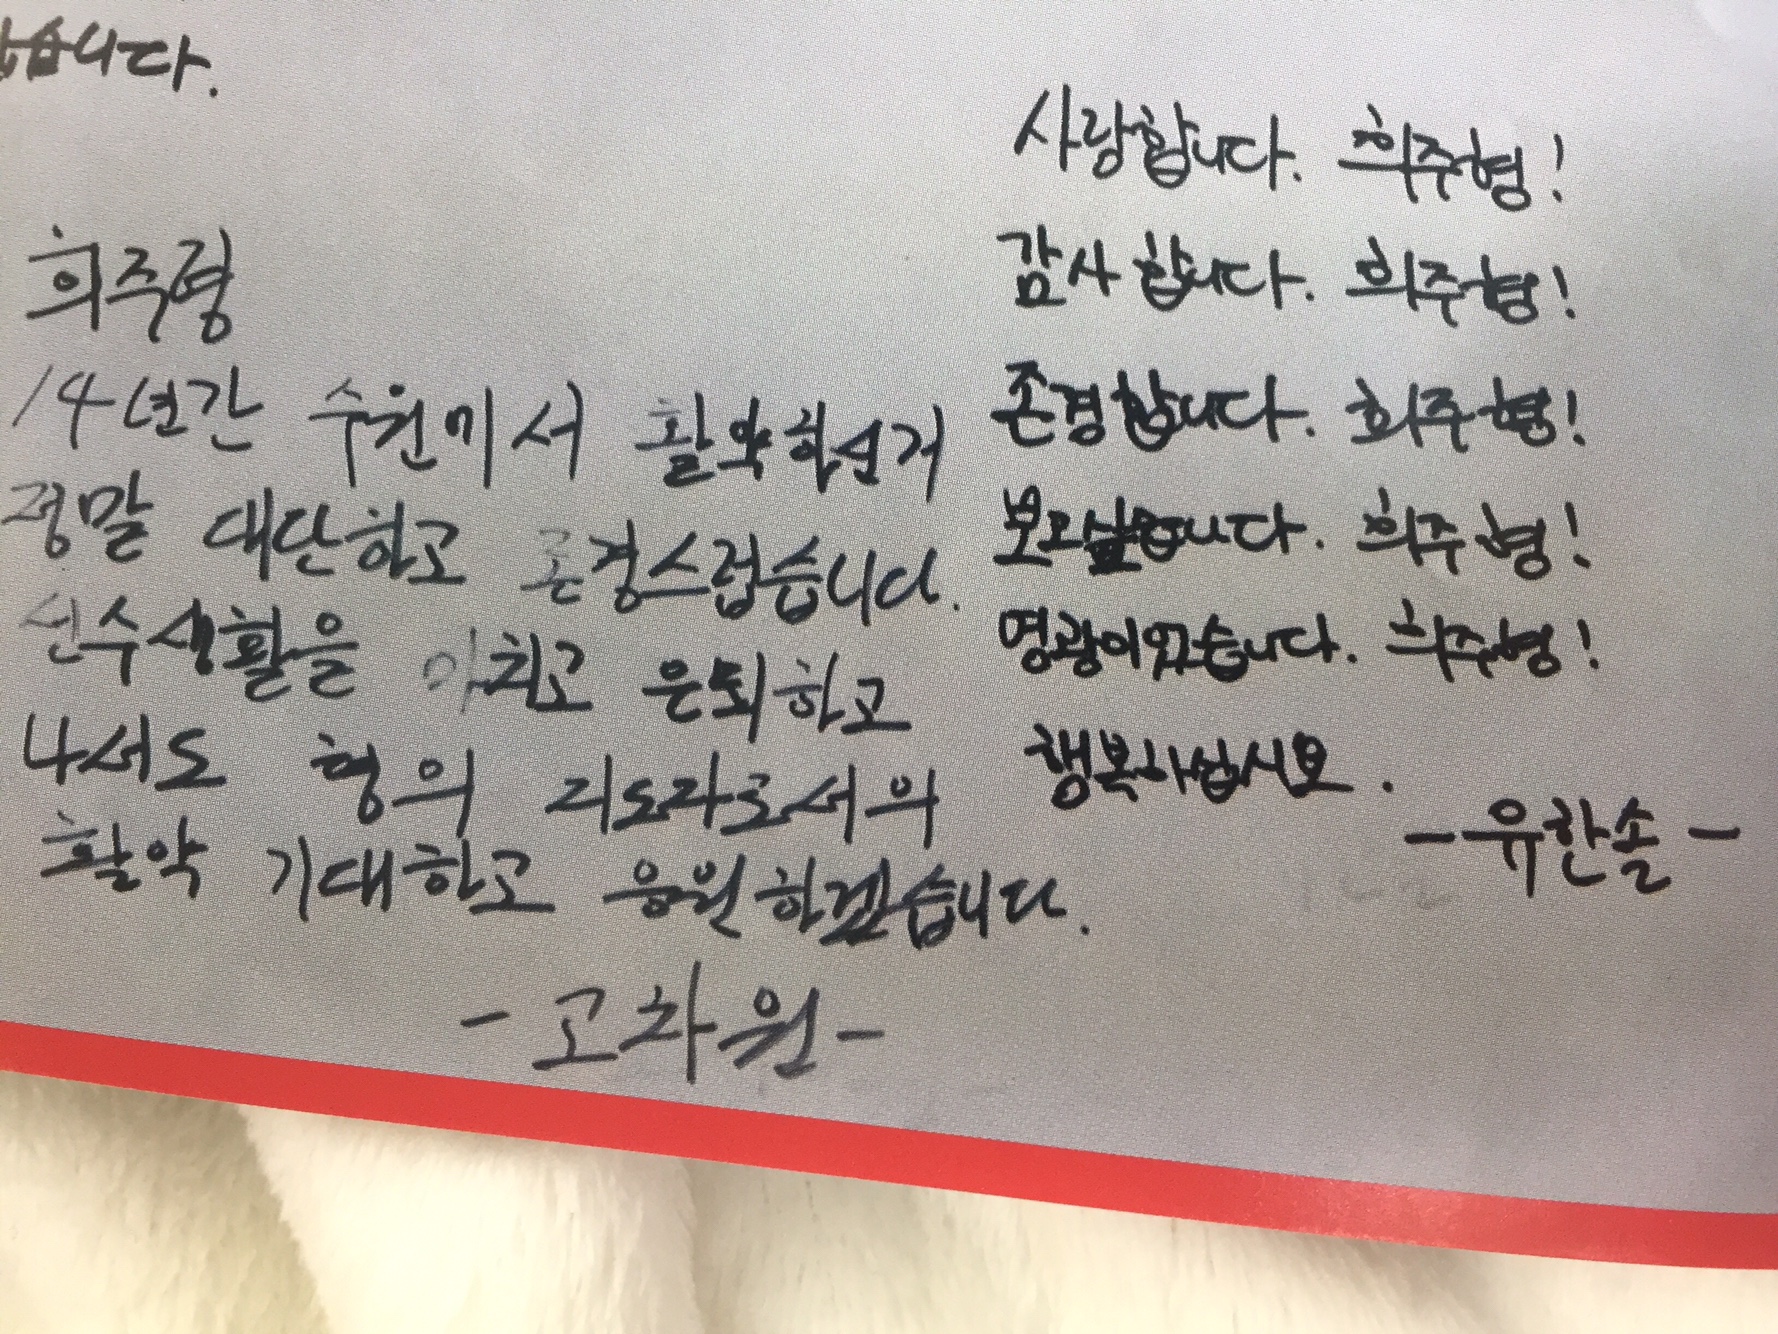 습니다.
희주형
14년간 수원에서 활약하신거
정말 대단하고 존경스럽습니다.
선수생활을 마치고 은퇴하고
나서도 형의 지도자로서의
활약 기대하고 응원하겠습니다.
-고차원-
사랑합니다. 희주형!
감사합니다. 희주형!
존경합니다. 희주형!
보고싶습니다. 희주형!
영광이었습니다. 희주형!
행복하십시오.
-유한솔-